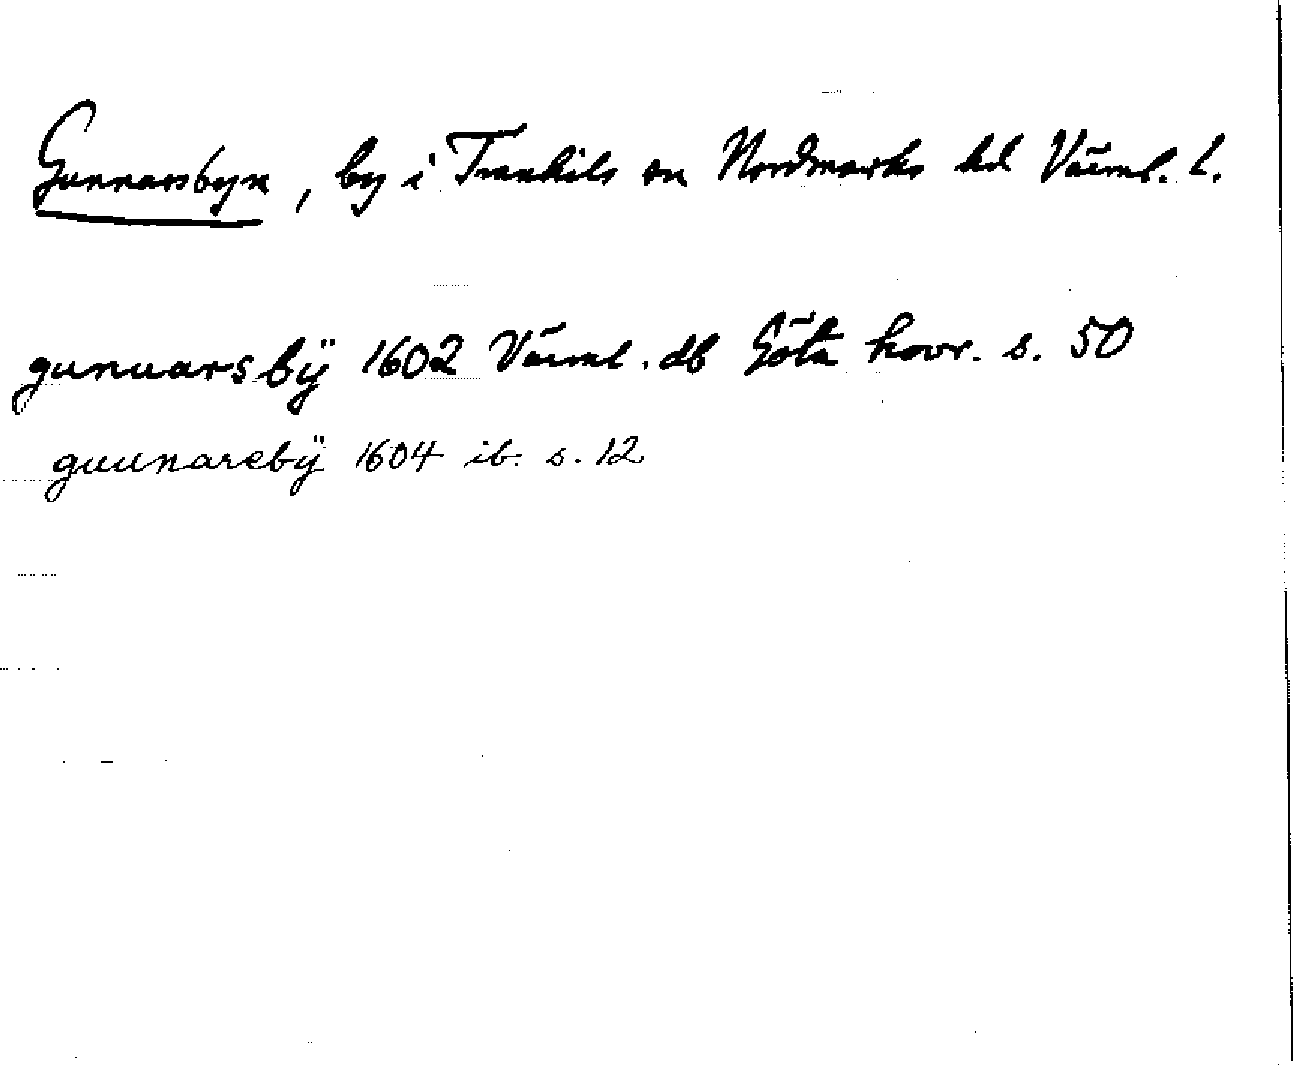 Gunnarsbyn, by i Trankils sn Nordmarks hd Värml. l.
gunnarsbÿ 1602 Värml. db Göta hovr. s. 50
gunnarsbÿ 1604 ib. s. 12